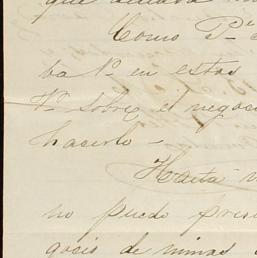 Como Pr.
ba Vº. en estos
Vº. sobre el negoci
hacerlo -
Hasta
no puedo pres
gocio de minas